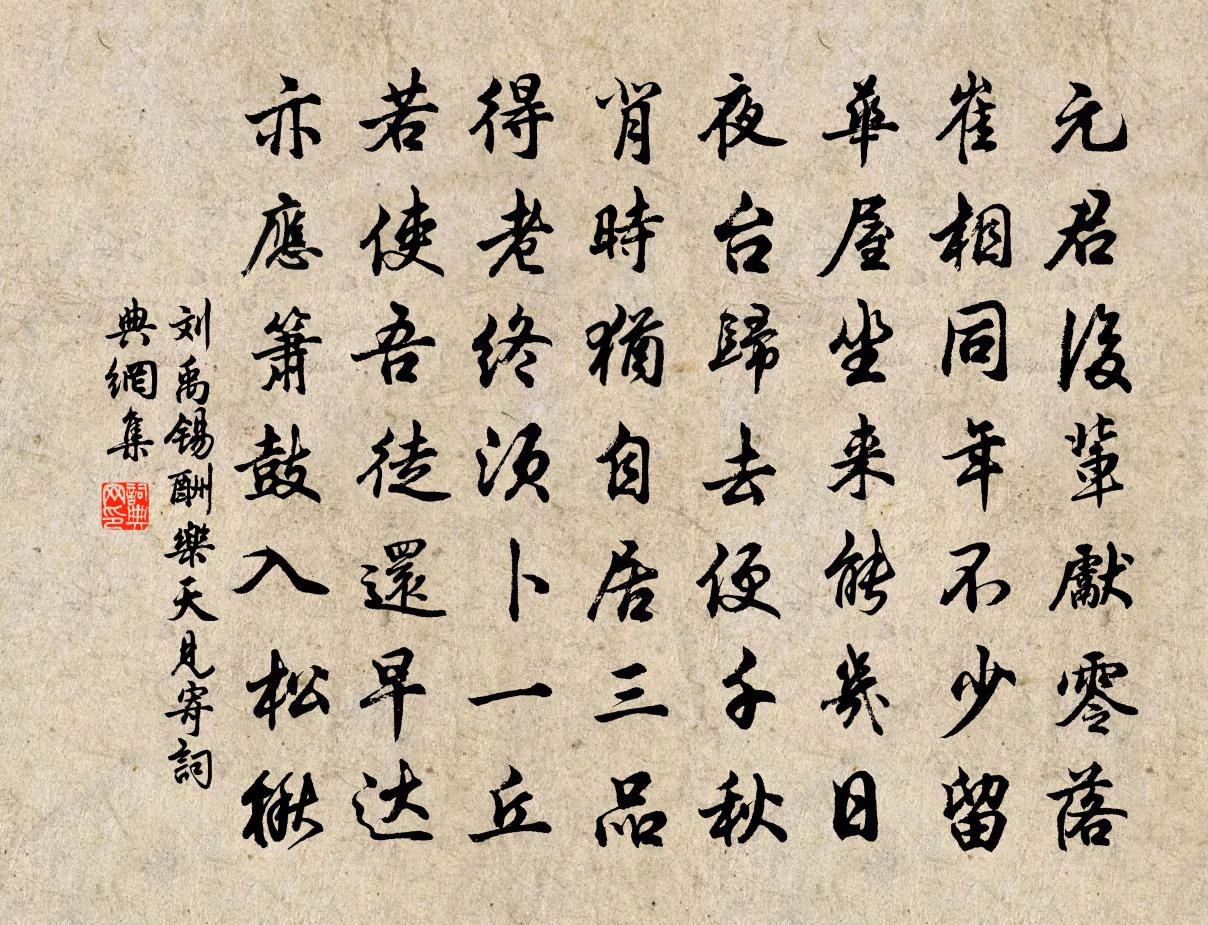 元君後輩獻零落
崔相同年不少留
華屋坐来能幾日
夜台歸去便千秋
背時猶自居三品
得老终须卜一丘
若使吾徒還早达
亦應簫鼓入松楸
刘禹锡酬樂天見寄詞
典網集
詞典网印